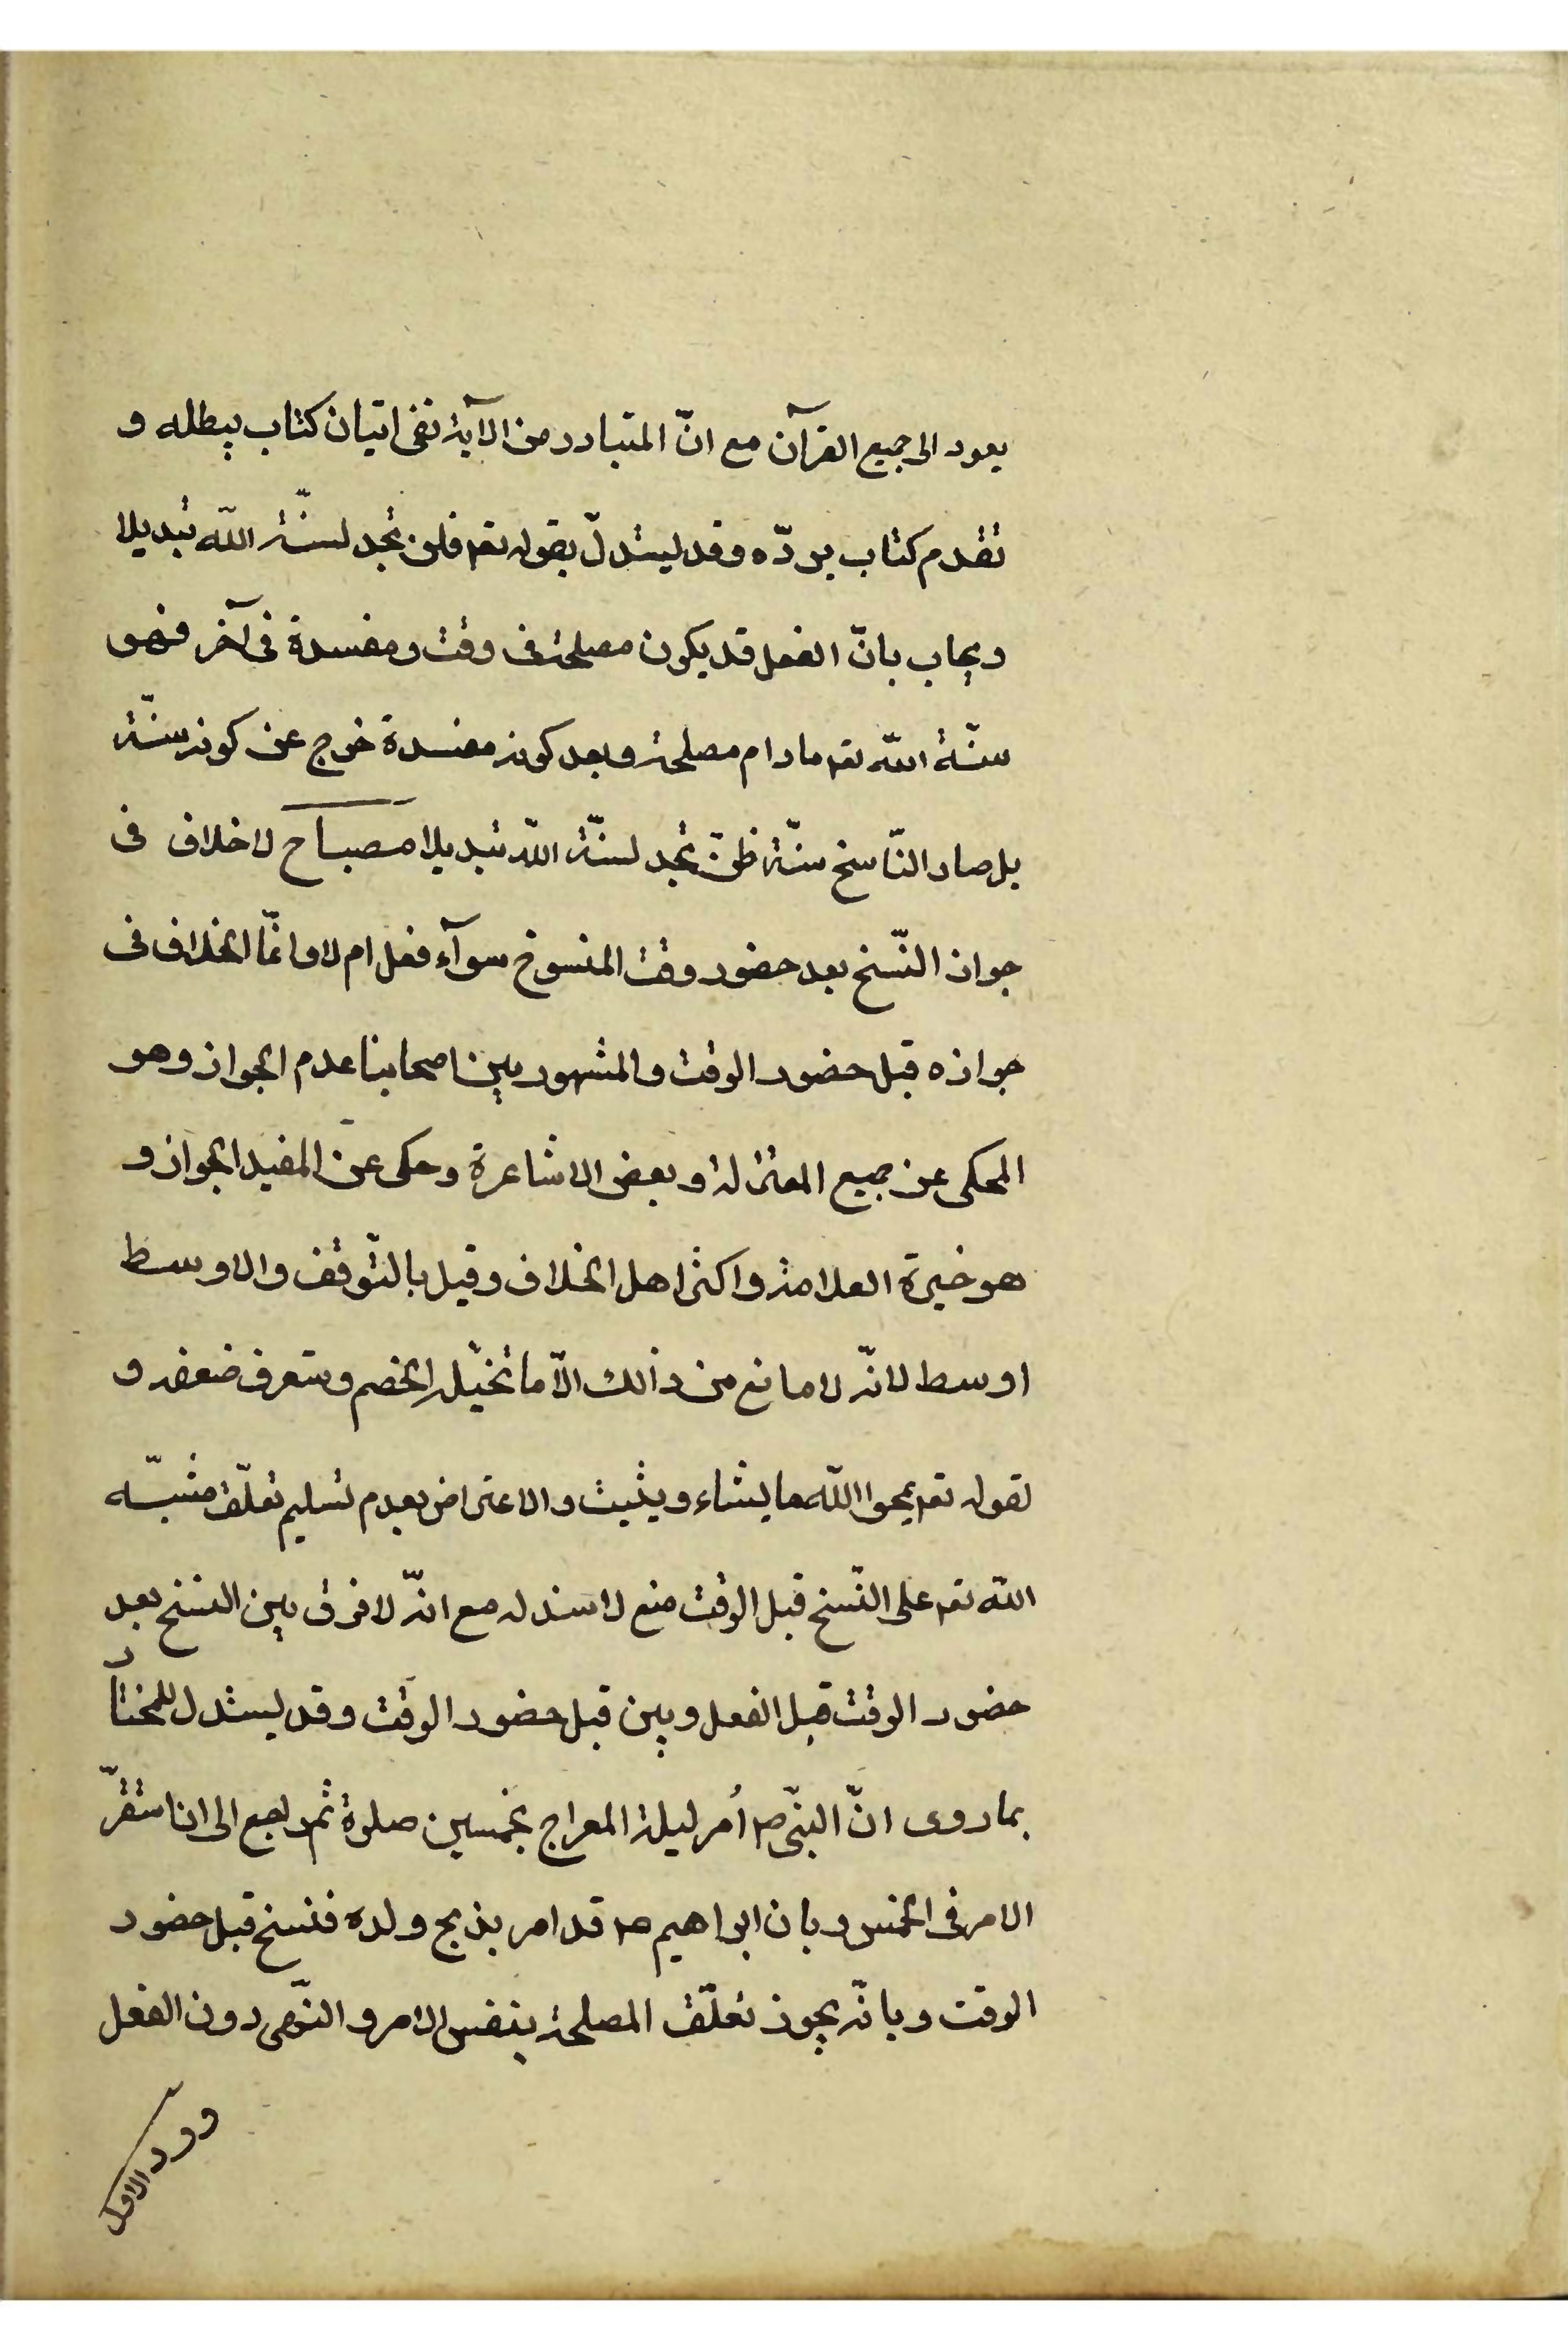 يعود الى جميع القرآن مع انّ المتبادر من الآية نفى اتيان كتاب يبطله و
تقدم كتاب يردّه وقد يستدلّ بقوله تعم فلن تجد لسنّة اللّه تبديلا
ويجاب بانّ الفعل قد يكون مصلحة فى وقت ومفسدة فى آخر فهو
سنّة اللّه تعم مادام مصلحة وبعد كونه مفسدة خرج عن كونه سنّة
بل صار النّاسخ سنّة فلن تجد لسنّة اللّه تبديلا مصباح لاخلاف فى
جواز النّسخ بعد حضور وقت المنسوخ سوآء فعل ام لا وانّما الخلاف فى
جوازه قبل حضور الوقت والمشهور بين اصحابنا عدم الجواز وهو
المحكى عن جميع المعتزلة و بعض الاشاعرة وحكى عن المفيد الجواز و
هو خيرة العلامة واكثر اهل الخلاف وقيل بالتّوقف والاوسط
اوسط لانّه لا مانع من ذالك الّا ما تخيّله الخصم وستعرف ضعفه و
لقوله تعم يمحوا اللّه ما يشاء ويثبت والاعتراض بعدم تسليم تعلّق مشيّته
اللّه تعم على النّسخ قبل الوقت منع لا سند له مع انّه لا فرق بين النسخ بعد
حضور الوقت قبل الفعل وبين قبل حضور الوقت وقد يستدل للمختار
بما روى انّ النبّى ص أمر ليلة المعراج بخمسين صلوة ثم راجع الى ان استقرّ
الامر فى الخمس وبان ابراهيم ص قد امر بذبح ولده فنسخ قبل حضور
الوقت وبانّه يجوز تعلّق المصلحة بنفس الامر و النّهى دون الفعل
وردّ الاول